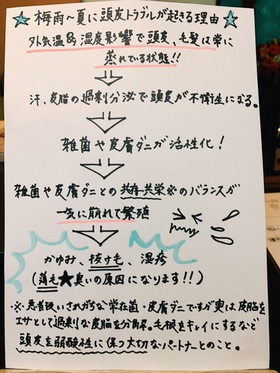 ★梅雨～夏に頭皮トラブルが起きる理由★
外気温&湿度影響で頭皮、毛髪は常に
蒸れている状態!!
汗、皮脂の過剰分泌で頭皮が不衛生になる。
雑菌や皮膚ダニが活性化!
雑菌や皮膚ダニとの共存共栄※のバランスが
一気に崩れて繁殖
かゆみ、抜け毛、湿疹
(薄毛★臭いの原因になります!!)
・※・悪者扱いされがちな常在菌・皮膚ダニですが実は皮脂を
エサとして過剰な皮脂を分解。毛根をキレイにするなど
頭皮を弱酸性に保つ大切なパートナーとのこと。